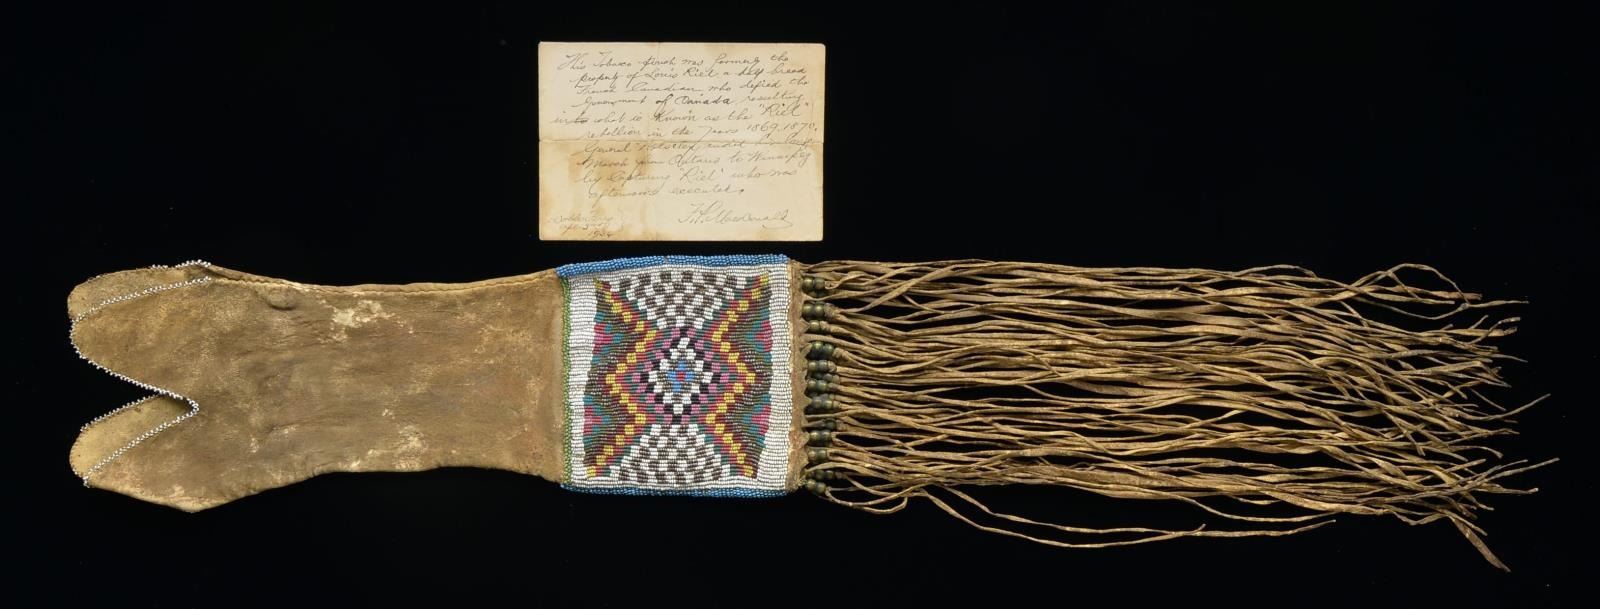 This Tobacco pouch was formerly the
property of Louis Riel, a half breed
French Canadian, who defied the
Government of Canada, resulting
in what is known as the "Riel"
rebellion in the years 1869, 1870.
General made his long
March from Ontario to Winnipeg
by Capturing "Riel" who was
afterwards executed.
MacDonald
1924